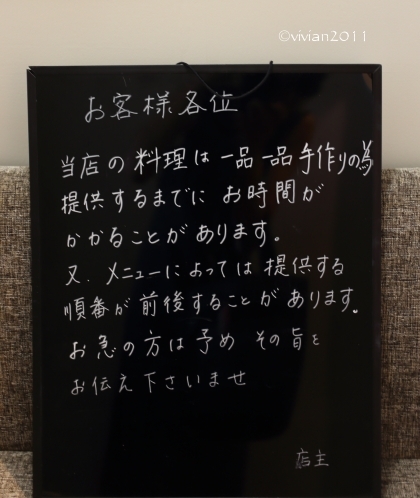 ©vivian2011
お客様各位
当店の料理は一品一品手作りの為
提供するまでに お時間が
かかることがあります。
又、メニューによっては提供する
順番が前後することがあります。
お急の方は予め その旨を
お伝え下さいませ
店主